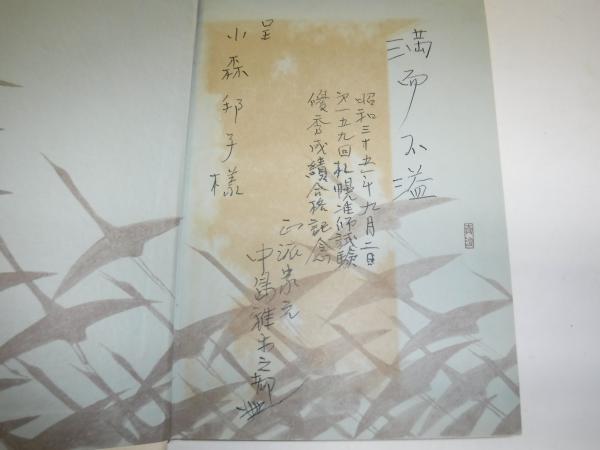 満而不溢
昭和三十五年九月二日
第一五九回札幌准師試験
優秀成績合格記念
正派家元
中島雅楽之都
呈
小森邦子様